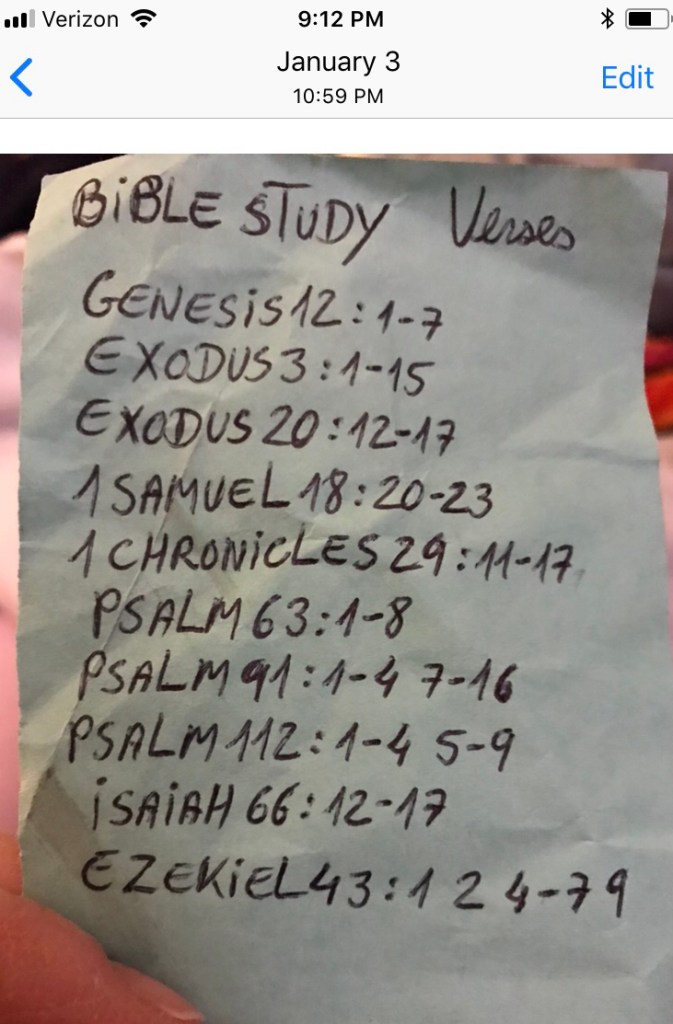 Verizon 9:12 PM
January 3
10:59 PM
Edit
BiBLE STUDY Verses
GENESiS 12:1-7
EXODUS 3:1-15
EXODUS 20:12-17
1 SAMUEL 18:20-23
1 CHRONiCLES 29:11-17
PSALM 63:1-8
PSALM 91:1-4 7-16
PSALM 112:1-4 5-9
iSAiAH 66:12-17
EZEKiEL 43:1 2 4-7 9